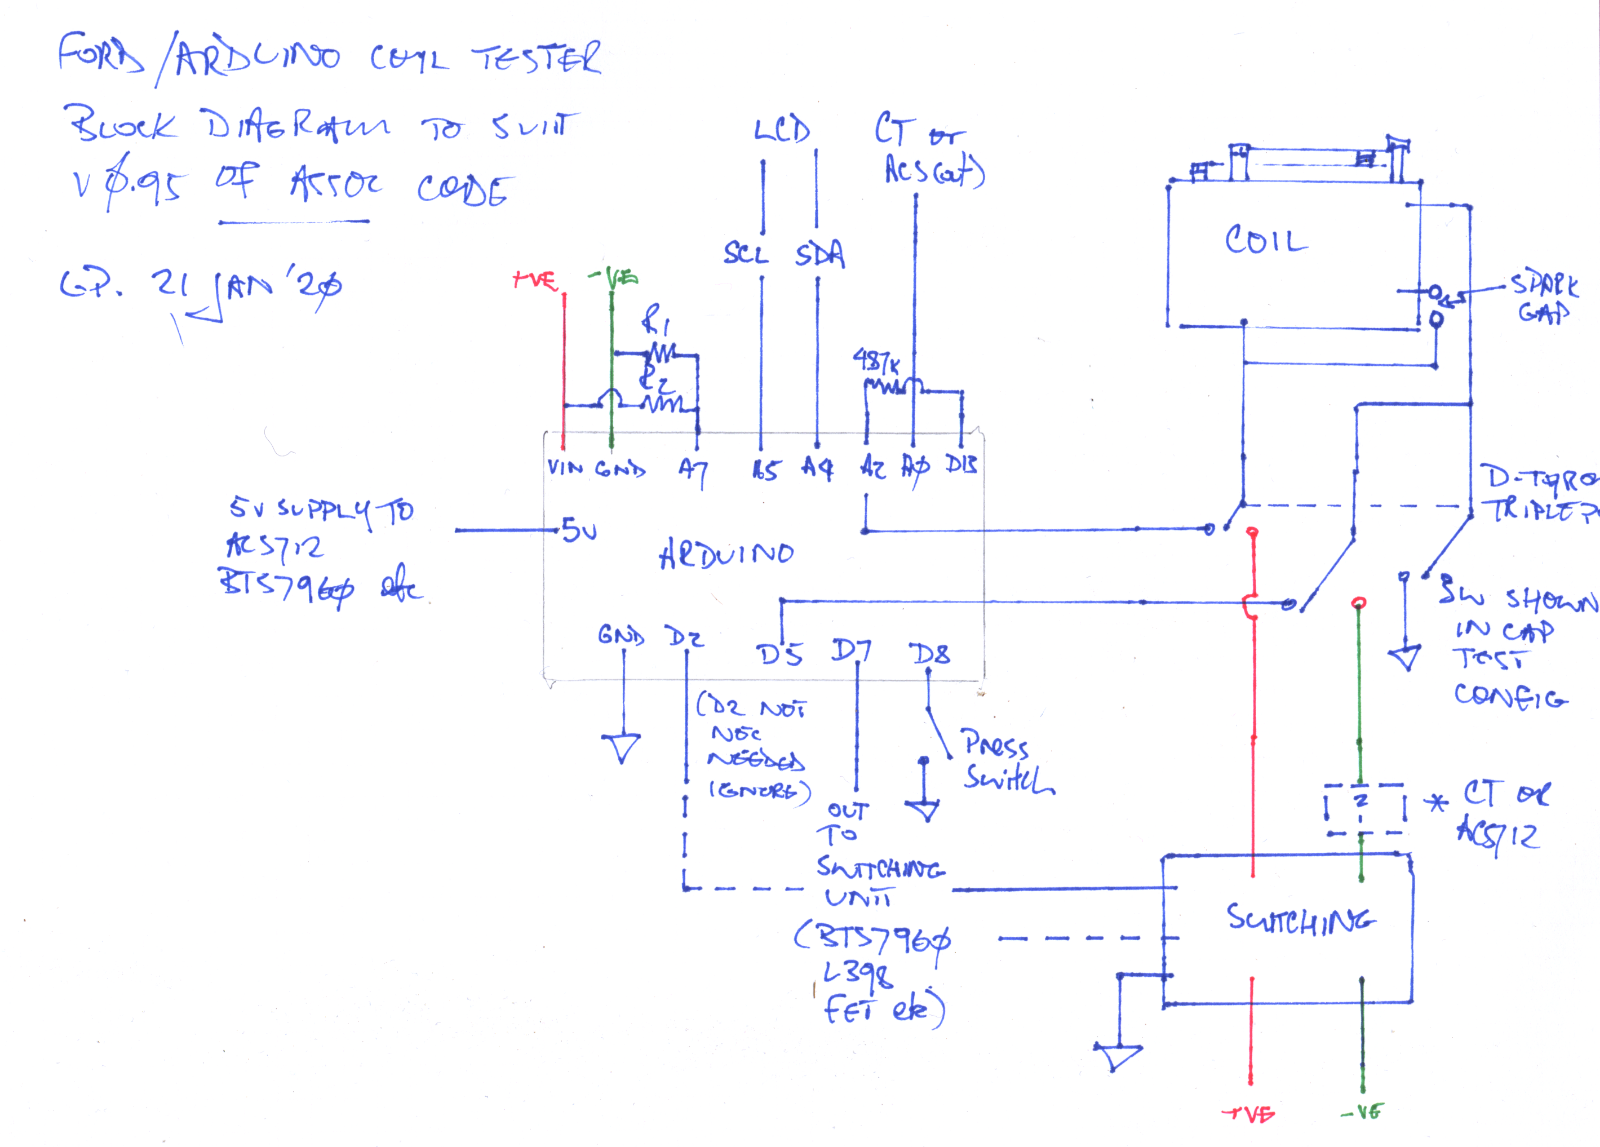 FORD/ARDUINO COIL TESTER
BLOCK DIAGRAM TO SUIT
VØ.95 OF ASSOC CODE
GP. 21 JAN '2Ø
LCD
CT or
ACS(out)
SCL SDA
+VE
-VE
R1
R2
487K
COIL
SPARK
GAP
VIN GND A7 A5 A4 A2 AØ D13
5V SUPPLY TO
ACS712
BTS796Ø etc
5V
ARDUINO
D-THRO
TRIPLE P
SW SHOWN
IN CAP
TEST
CONFIG
GND D2 D5 D7 D8
(D2 NOT
NEC
NEEDED
IGNORE)
PRESS
SWITCH
OUT
TO
SWITCHING
UNIT
(BTS796Ø
L398
FET etc)
2
* CT OR
ACS712
SWITCHING
+VE
-VE